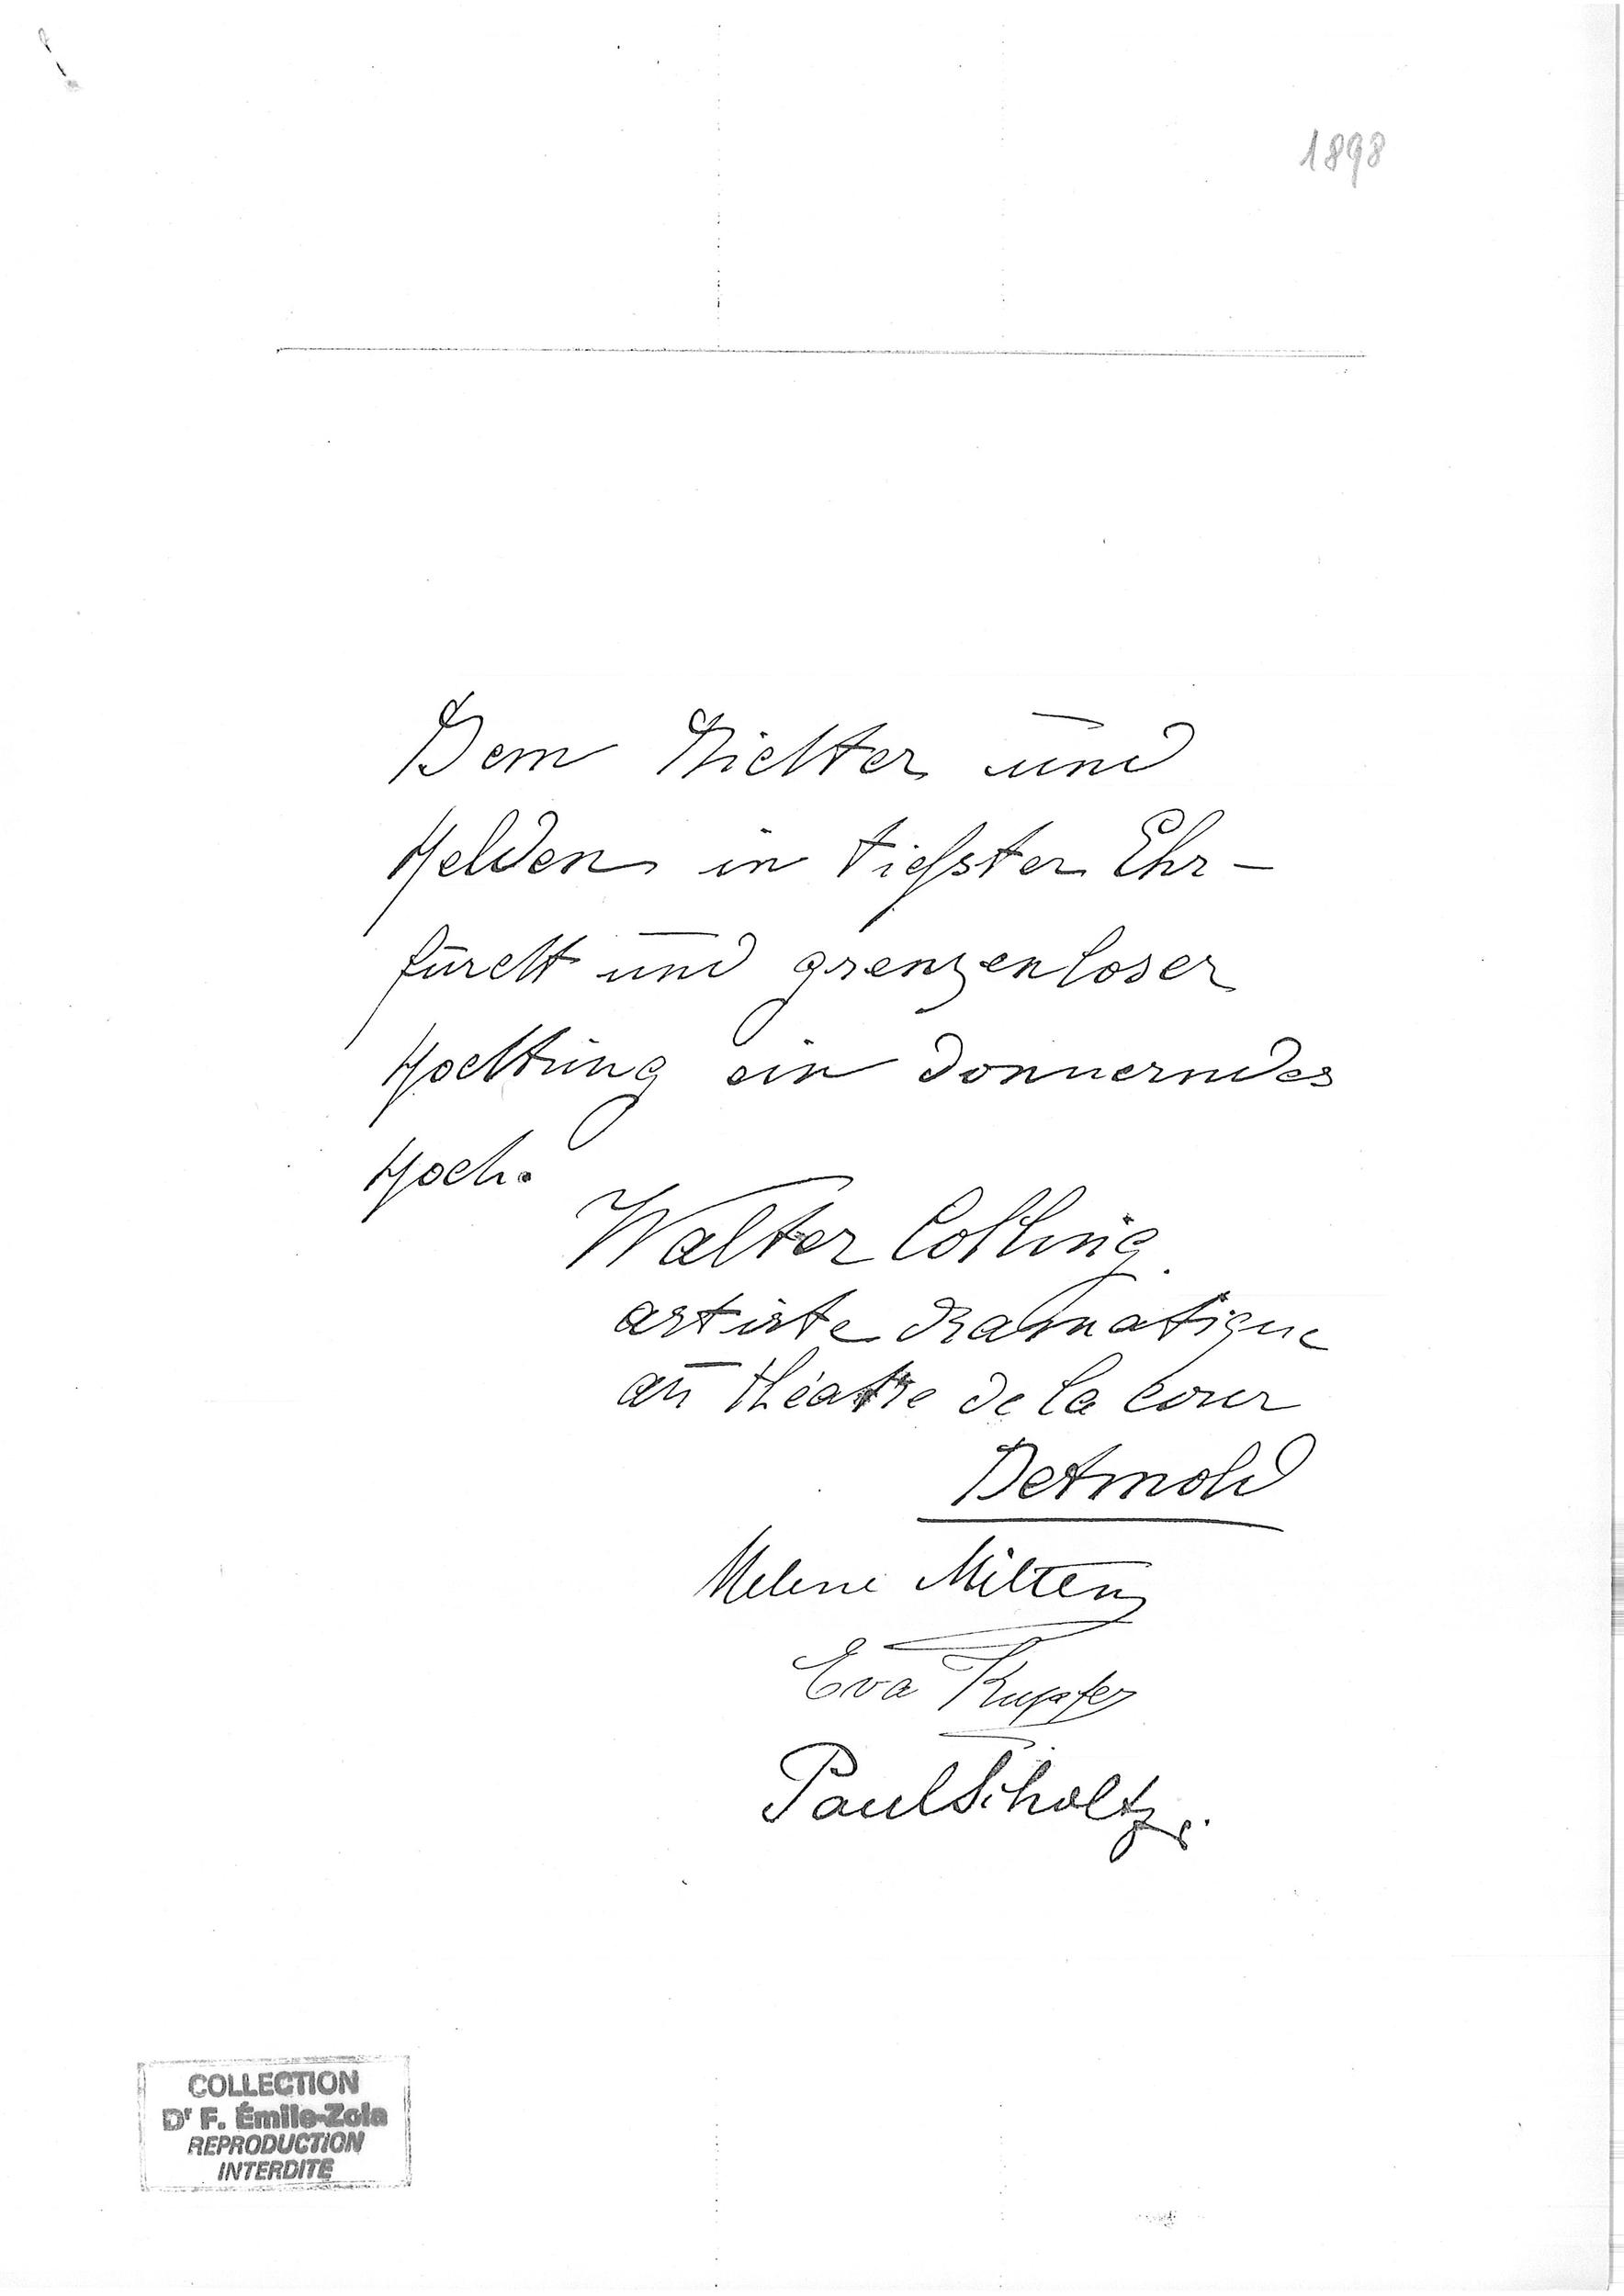 1898
Dem Dichter und
Helden in tiefster Ehr-
furcht und grenzenloser
Hochtung ein donnerndes
Hoch.
Walter Colling.
artiste dramatique
au théatre de la cour
Detmold
Helene Milten
Eva Kupfer
Paul Scholtz.
COLLECTION
Dr F. Émile-Zola
REPRODUCTION
INTERDITE